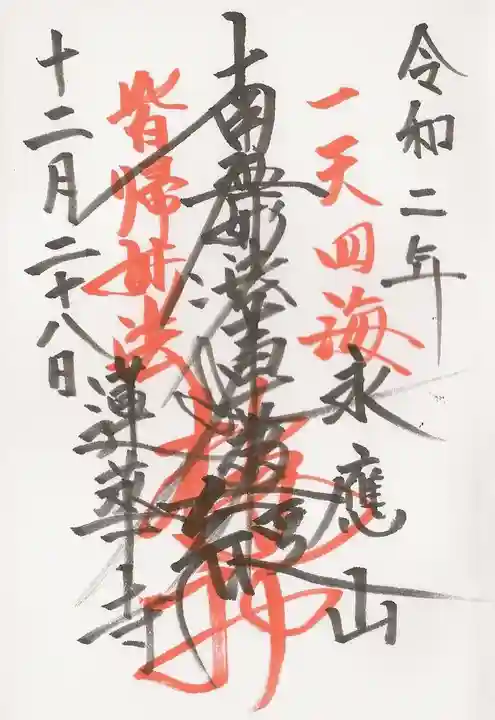 令和二年
一天四海
永應山
南無妙法蓮華経
皆帰妙法
蓮華寺
十二月二十八日